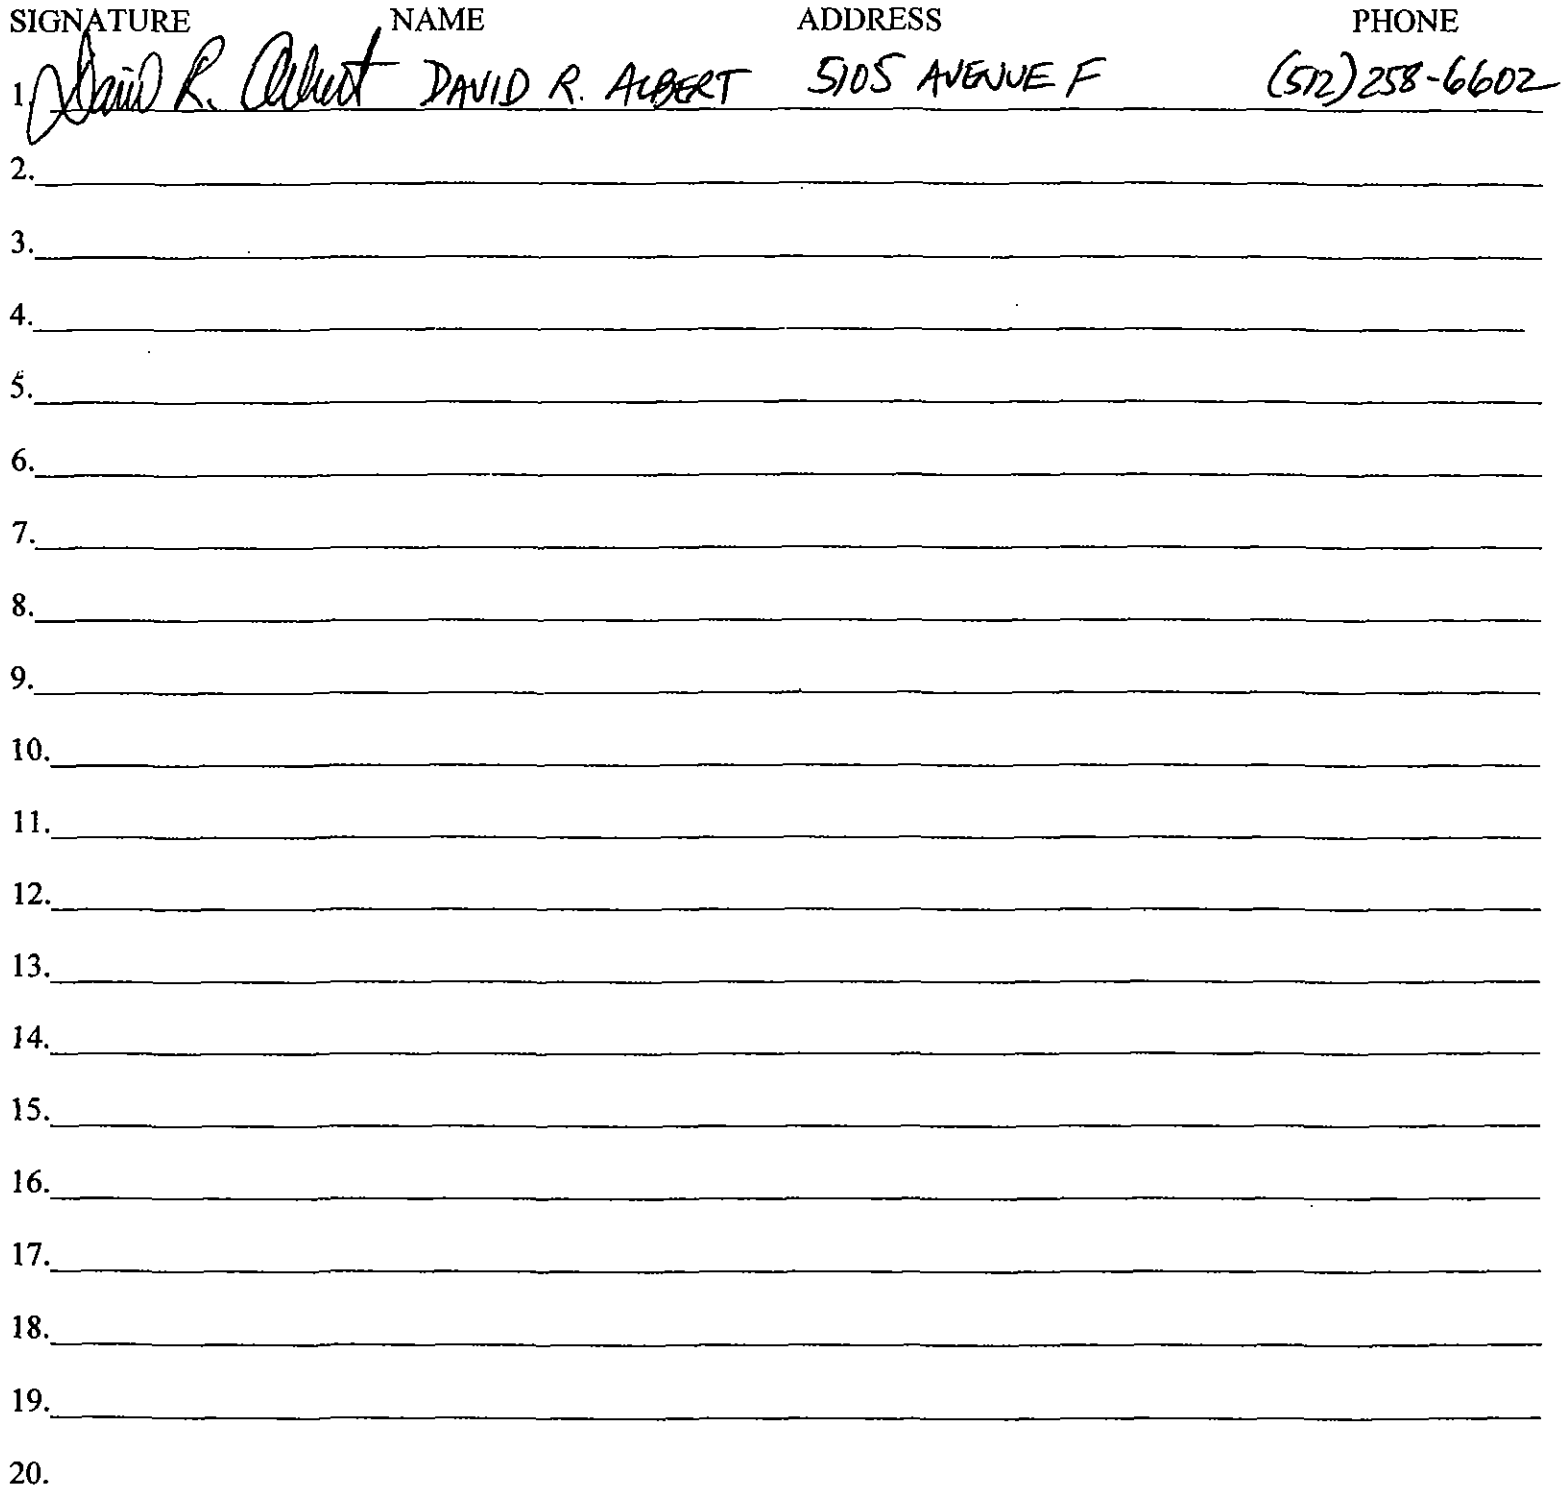 SIGNATURE NAME ADDRESS PHONE
1. David R. Albert DAVID R. ALBERT 5105 AVENUE F (512) 258-6602
2.
3.
4.
5.
6.
7.
8.
9.
10.
11.
12.
13.
14.
15.
16.
17.
18.
19.
20.